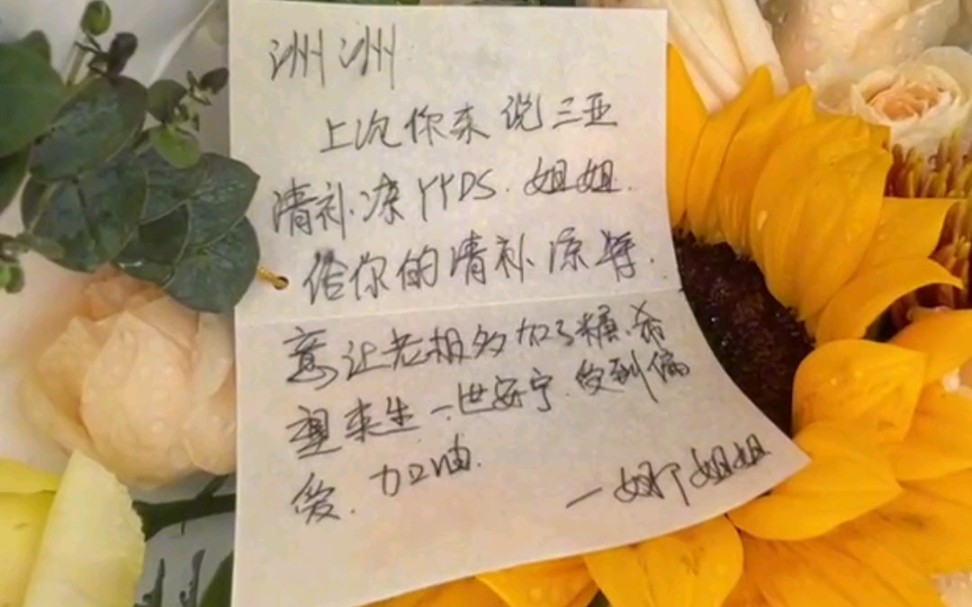 洲洲
上次你来说三亚
清补凉YYDS.姐姐
给你的清补凉特
意让老板多加了糖.希
望来生一世安宁.受到偏
爱.加油.
—娜姐姐